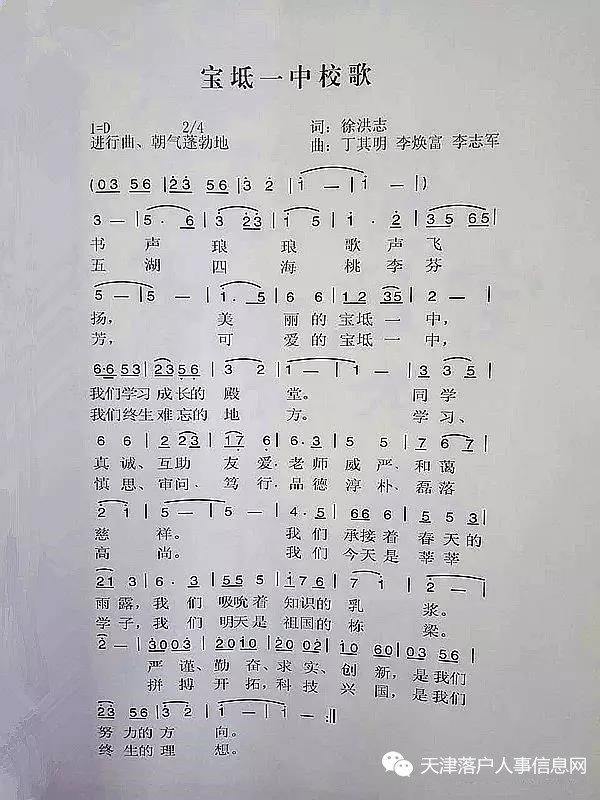 宝坻一中校歌
1=D 2/4 词：徐洪志
进行曲、朝气蓬勃地 曲：丁其明 李焕富 李志军
(03 56 | 23 56 | 3 2 | 1 — | 1 — |)
3 — | 5. 6 | 3 23 | 1 5 | 1 . 2 | 35 65 |
书 声 琅 琅 歌 声 飞
五 湖 四 海 桃 李 芬
5 — | 5 — | 1. 5 | 6 6 | 12 35 | 2 — |
扬， 美 丽 的 宝坻 一 中，
芳， 可 爱 的 宝坻 一 中，
6·6 53 | 23 56 | 3 2 | 1 — | 1 — | 3 5 |
我们学习 成长的 殿 堂。 同 学
我们终生 难忘的 地 方。 学 习、
6 6 | 2 23 | 17 6 | 6·3 | 5 5 | 7 67 |
真 诚、互助 友 爱，老 师 威 严、和 蔼
慎 思、审问、笃 行，品 德 淳 朴、磊 落
2 1 | 5 — | 5 — | 4. 5 | 66 6 | 5 5 3 |
慈 祥。 我 们 承接 着 春 天 的
高 尚。 我 们 今天 是 莘 莘
21 3 | 6. 3 | 55 5 | 1 7 6 | 7 1 | 2 — |
雨 露，我 们 吸吮 着 知识的 乳 浆。
学 子，我 们 明天 是 祖国的 栋 梁。
2 — | 3003 | 2010 | 2020 | 6010 | 03 56 |
严 谨、勤 奋、求 实、创 新，是 我们
拼 搏 开 拓，科 技 兴 国，是 我们
23 56 | 3 2 | 1 — | 1 — :||
努 力的 方 向。
终 生的 理 想。
天津落户人事信息网